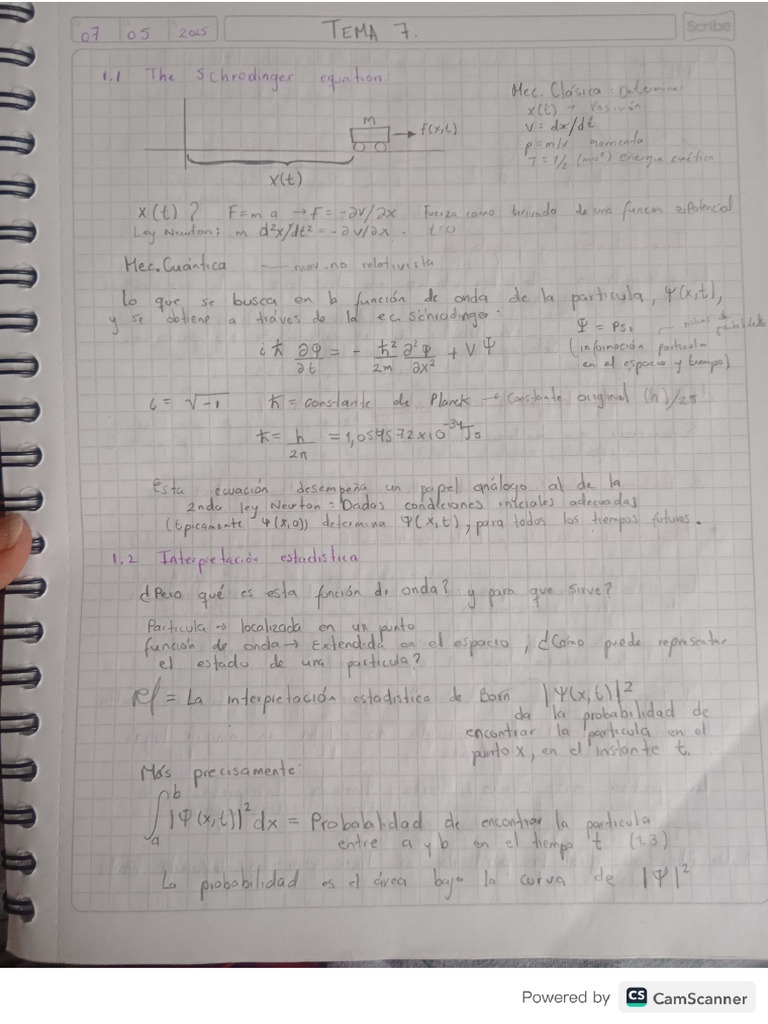 07 05 2025 TEMA 7. Scribe
1.1 The Schrodinger equation
Mec. Clásica: Determinar
x(t) → Posición
v = dx/dt
p = mv momento
T = 1/2 (mv²) energía cinética
M → F(x,t)
x(t)
x(t)? F = m a → F = -∂V/∂x Fuerza como derivada de una función potencial
Ley Newton: m d²x/dt² = -∂V/∂x. t=0
Mec. Cuántica — mov. no relativista
Lo que se busca en la función de onda de la partícula, Ψ(x,t),
y se obtiene a tráves de la ec. Schrodinger:
Ψ = Psi
(información particula
en el espacio y tiempo)
iħ ∂Ψ/∂t = - ħ²/2m ∂²Ψ/∂x² + VΨ
i = √-1 ħ = constante de Planck → Constante original (h)/2π
ħ = h/2π = 1,054572x10⁻³⁴Js
Esta ecuación desempeña un papel análogo al de la
2nda ley Newton: Dadas condiciones iniciales adecuadas
(tpicamente Ψ(x,0)) determina Ψ(x,t), para todos los tiempos futuros.
1.2 Interpretación estadistica
¿Pero qué es esta función de onda? y para que sirve?
Particula → localizada en un punto
función de onda → Extendida en el espacio, ¿Cómo puede representar
el estado de una particula?
R/ = La interpretación estadistica de Born |Ψ(x,t)|²
da la probabilidad de
encontrar la partícula en el
punto x, en el instante t.
Más precisamente:
∫ₐᵇ |Ψ(x,t)|² dx = Probabilidad de encontrar la particula
entre a y b en el tiempo t (1.3)
La probabilidad es el área bajo la curva de |Ψ|²
Powered by CS CamScanner